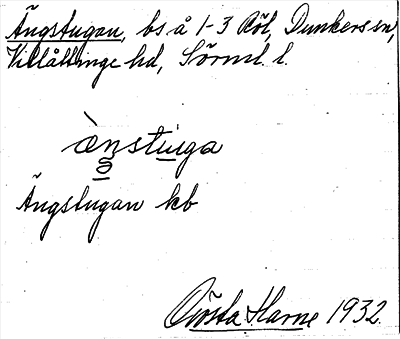 Ängstugan, bs å 1-3 Röl, Dunkers sn,
Villåttinge hd, Sörml. l.
ànstu̲i̲ga
Ängstugan kb
Gösta Harne 1932.